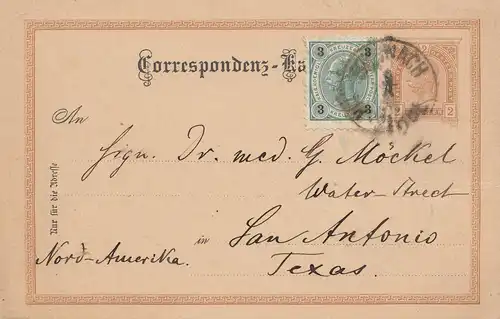 Correspondenz-Ka
3 KREUZER 3
3 3
2 2
An
Sign. Dr. med. G. Möckel
Water-Street
in San Antonio
Nord-Amerika.
Texas.
Nur für die Adresse